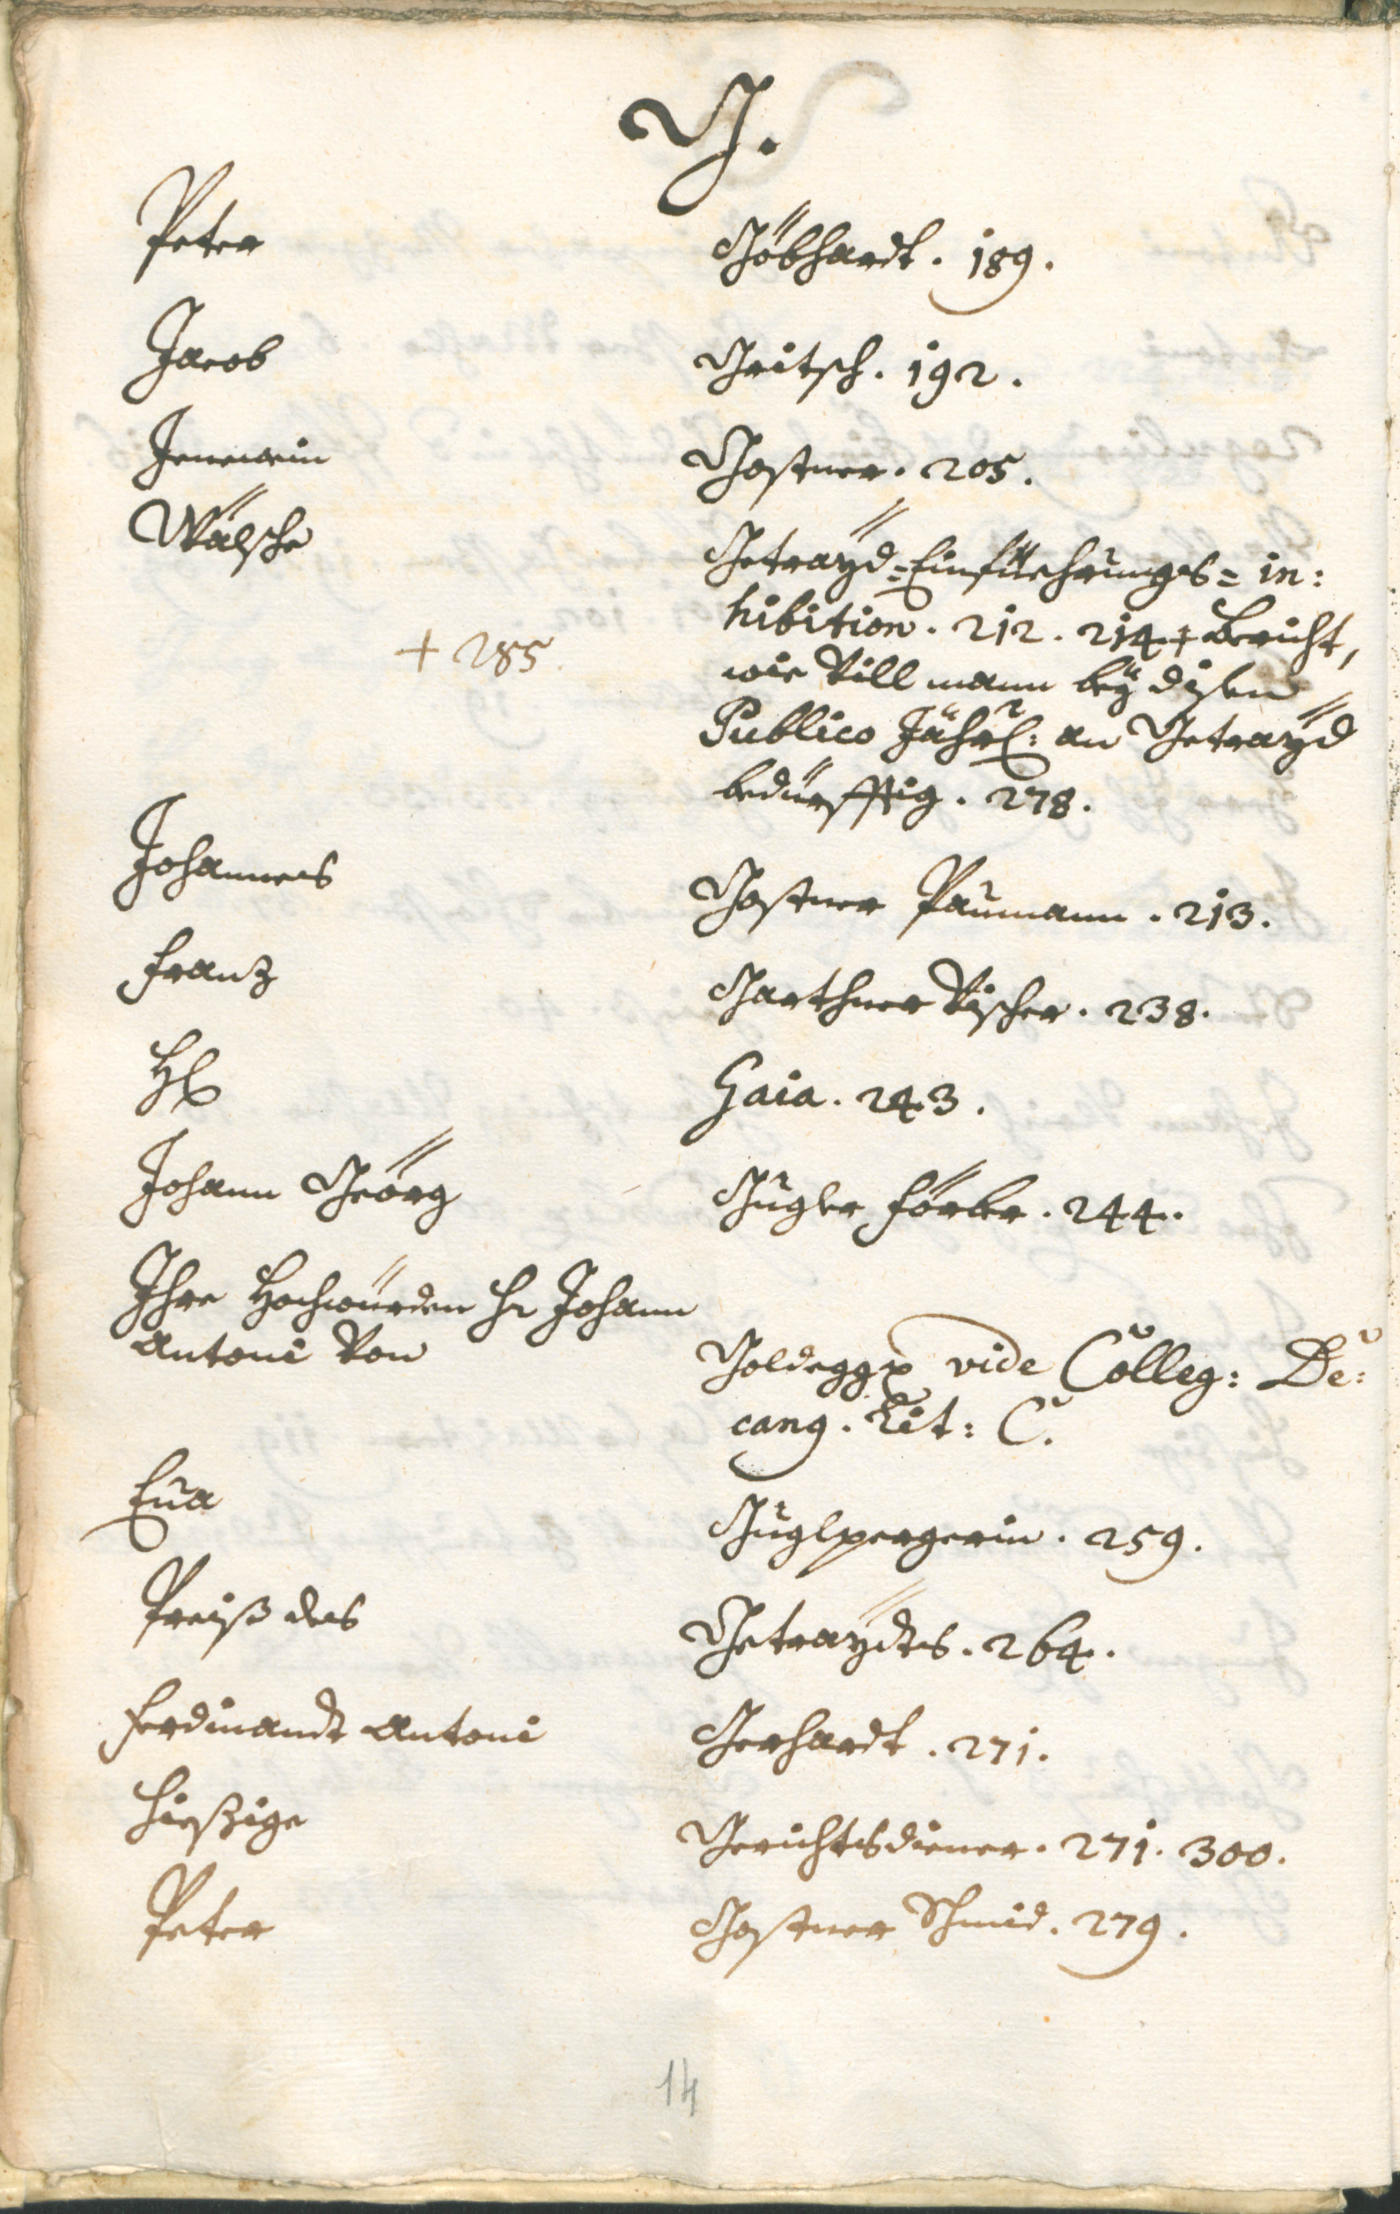 G.
Peter Göbhardt. 189.
Jacob Gritsch. 192.
Jenewein Gostner. 205.
Wälsche Getrayd=Einfüehrungs=in:
hibition. 212. 214. + Bericht,
+ 285.
wie Vill mann bey disen
Publico Jährl: an Getrayd
bedürfftig. 278.
Johannes Gostner Paumann. 213.
Franz Garthner Vischer. 238.
H. Gaia. 243.
Johann Geörg Gugler Förber. 244.
Ihre Hochwürden Hr Johann
Antoni Von Goldegg vide Colleg: De:
cang. Lit: C.
Eua Guglpergerin. 259.
Preiß des Getraydts. 264.
Ferdinandt Antoni Gerhardt. 271.
Hießige Gerichtsdiener. 271. 300.
Peter Gostner Schmid. 279.
14